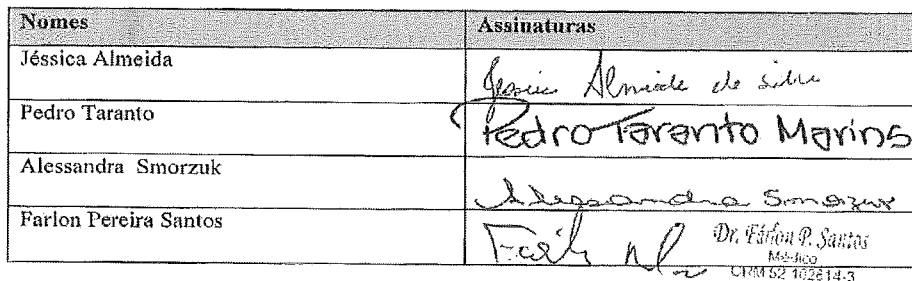 Nomes Assinaturas
Jéssica Almeida Jessica Almeida da Silva
Pedro Taranto Pedro Taranto Marins
Alessandra Smorzuk Alessandra Smorzuk
Farlon Pereira Santos
Dr. Fárlon P. Santos
Médico
CRM 52 102614-3